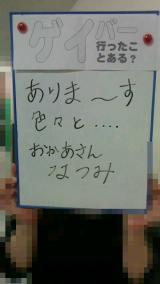 ゲイバー
行ったこ
とある？
ありま〜す
色々と‥‥
おかあさん
なつみ